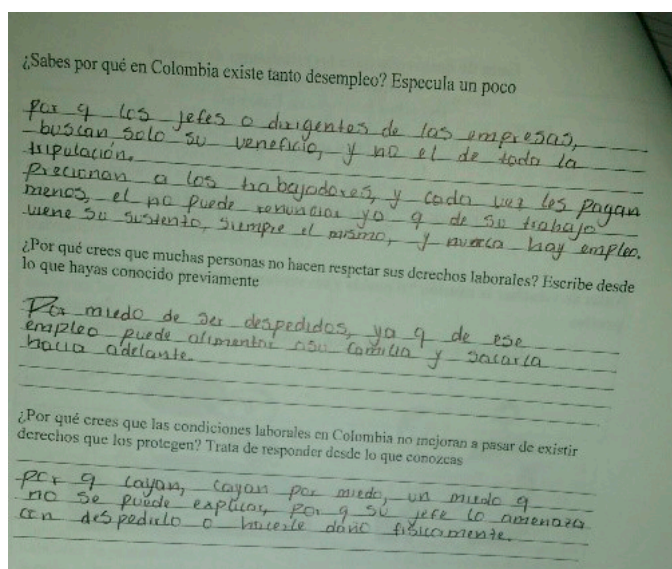 ¿Sabes por qué en Colombia existe tanto desempleo? Especula un poco
por q los jefes o dirigentes de las empresas,
buscan solo su veneficio, y no el de toda la
tripulación.
precionan a los trabajadores, y cada vez les pagan
menos, el no puede renunciar ya q de su trabajo
viene su sustento, siempre el mismo, y nunca hay empleo.
¿Por qué crees que muchas personas no hacen respetar sus derechos laborales? Escribe desde
lo que hayas conocido previamente
Por miedo de ser despedidos, ya q de ese
empleo puede alimentar asu familia y sacarla
hacia adelante.
¿Por qué crees que las condiciones laborales en Colombia no mejoran a pasar de existir
derechos que los protegen? Trata de responder desde lo que conozcas
por q cayan, cayan por miedo, un miedo q
no se puede explicar, por q su jefe lo amenaza
con despedirlo o hacerle daño fisicamente.